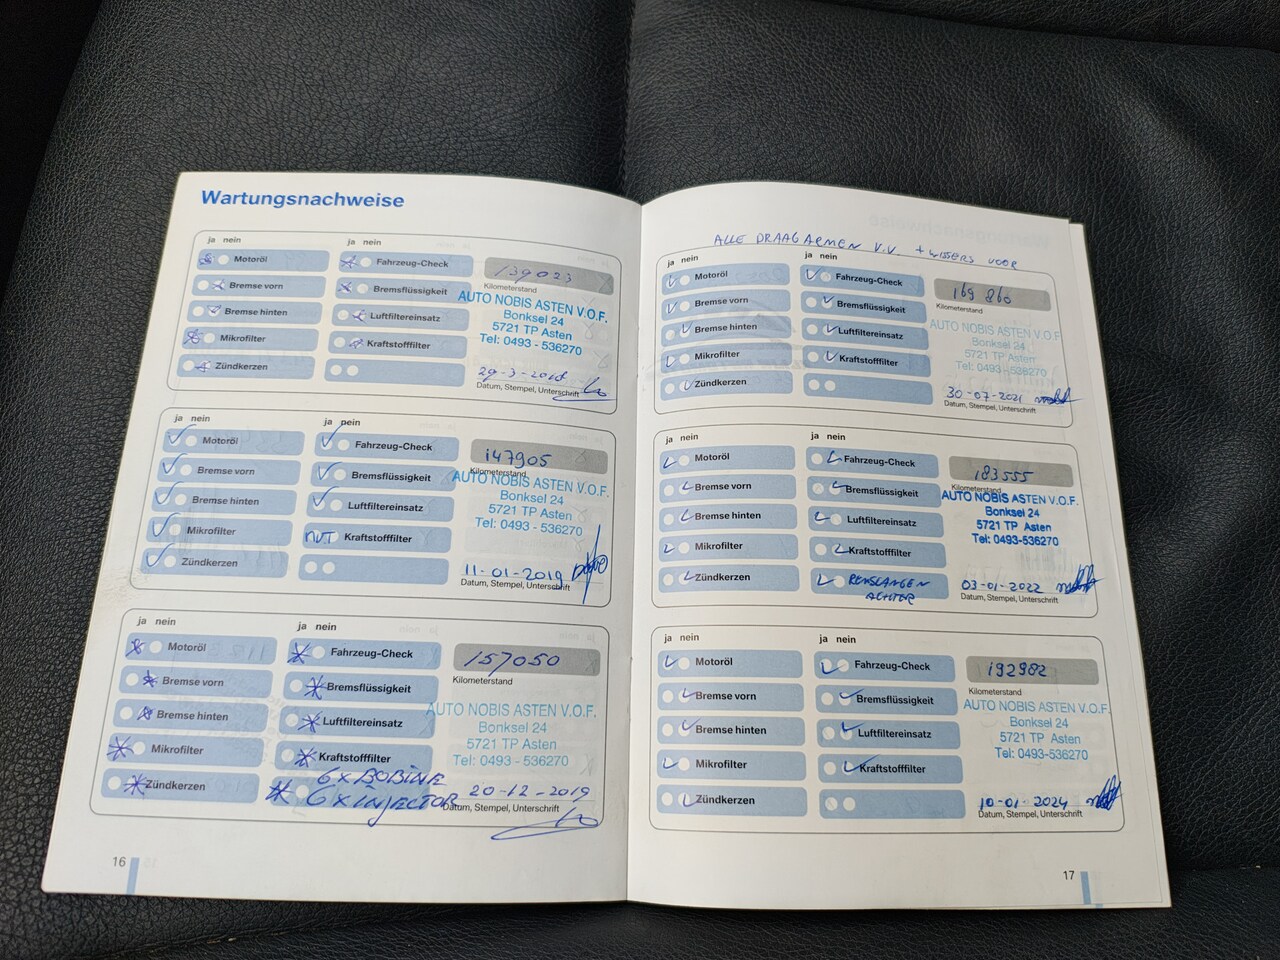 Wartungsnachweise
ja nein
ja nein
Motoröl
Fahrzeug-Check
139023
Kilometerstand
Bremse vorn
Bremsflüssigkeit
AUTO NOBIS ASTEN V.O.F.
Bonksel 24
5721 TP Asten
Tel: 0493 - 536270
Bremse hinten
Luftfiltereinsatz
Mikrofilter
Kraftstofffilter
Zündkerzen
29-3-2018
Datum, Stempel, Unterschrift
ja nein
ja nein
Motoröl
Fahrzeug-Check
147905
Kilometerstand
Bremse vorn
Bremsflüssigkeit
AUTO NOBIS ASTEN V.O.F.
Bonksel 24
5721 TP Asten
Tel: 0493 - 536270
Bremse hinten
Luftfiltereinsatz
Mikrofilter
NVT Kraftstofffilter
Zündkerzen
11-01-2019
Datum, Stempel, Unterschrift
ja nein
ja nein
Motoröl
Fahrzeug-Check
157050
Kilometerstand
Bremse vorn
Bremsflüssigkeit
AUTO NOBIS ASTEN V.O.F.
Bonksel 24
5721 TP Asten
Tel: 0493 - 536270
Bremse hinten
Luftfiltereinsatz
Mikrofilter
Kraftstofffilter
Zündkerzen
6x BOBINE
6x INJECTOR
20-12-2019
Datum, Stempel, Unterschrift
16
ALLE DRAAGARMEN V.V. + WISSERS VOOR
ja nein
ja nein
Motoröl
Fahrzeug-Check
169 860
Kilometerstand
Bremse vorn
Bremsflüssigkeit
AUTO NOBIS ASTEN V.O.F.
Bonksel 24
5721 TP Asten
Tel: 0493 - 536270
Bremse hinten
Luftfiltereinsatz
Mikrofilter
Kraftstofffilter
Zündkerzen
30-07-2021
Datum, Stempel, Unterschrift
ja nein
ja nein
Motoröl
Fahrzeug-Check
183555
Kilometerstand
Bremse vorn
Bremsflüssigkeit
AUTO NOBIS ASTEN V.O.F.
Bonksel 24
5721 TP Asten
Tel: 0493-536270
Bremse hinten
Luftfiltereinsatz
Mikrofilter
Kraftstofffilter
Zündkerzen
REMSLANGEN
ACHTER
03-01-2022
Datum, Stempel, Unterschrift
ja nein
ja nein
Motoröl
Fahrzeug-Check
192982
Kilometerstand
Bremse vorn
Bremsflüssigkeit
AUTO NOBIS ASTEN V.O.F.
Bonksel 24
5721 TP Asten
Tel: 0493-536270
Bremse hinten
Luftfiltereinsatz
Mikrofilter
Kraftstofffilter
Zündkerzen
10-01-2024
Datum, Stempel, Unterschrift
17